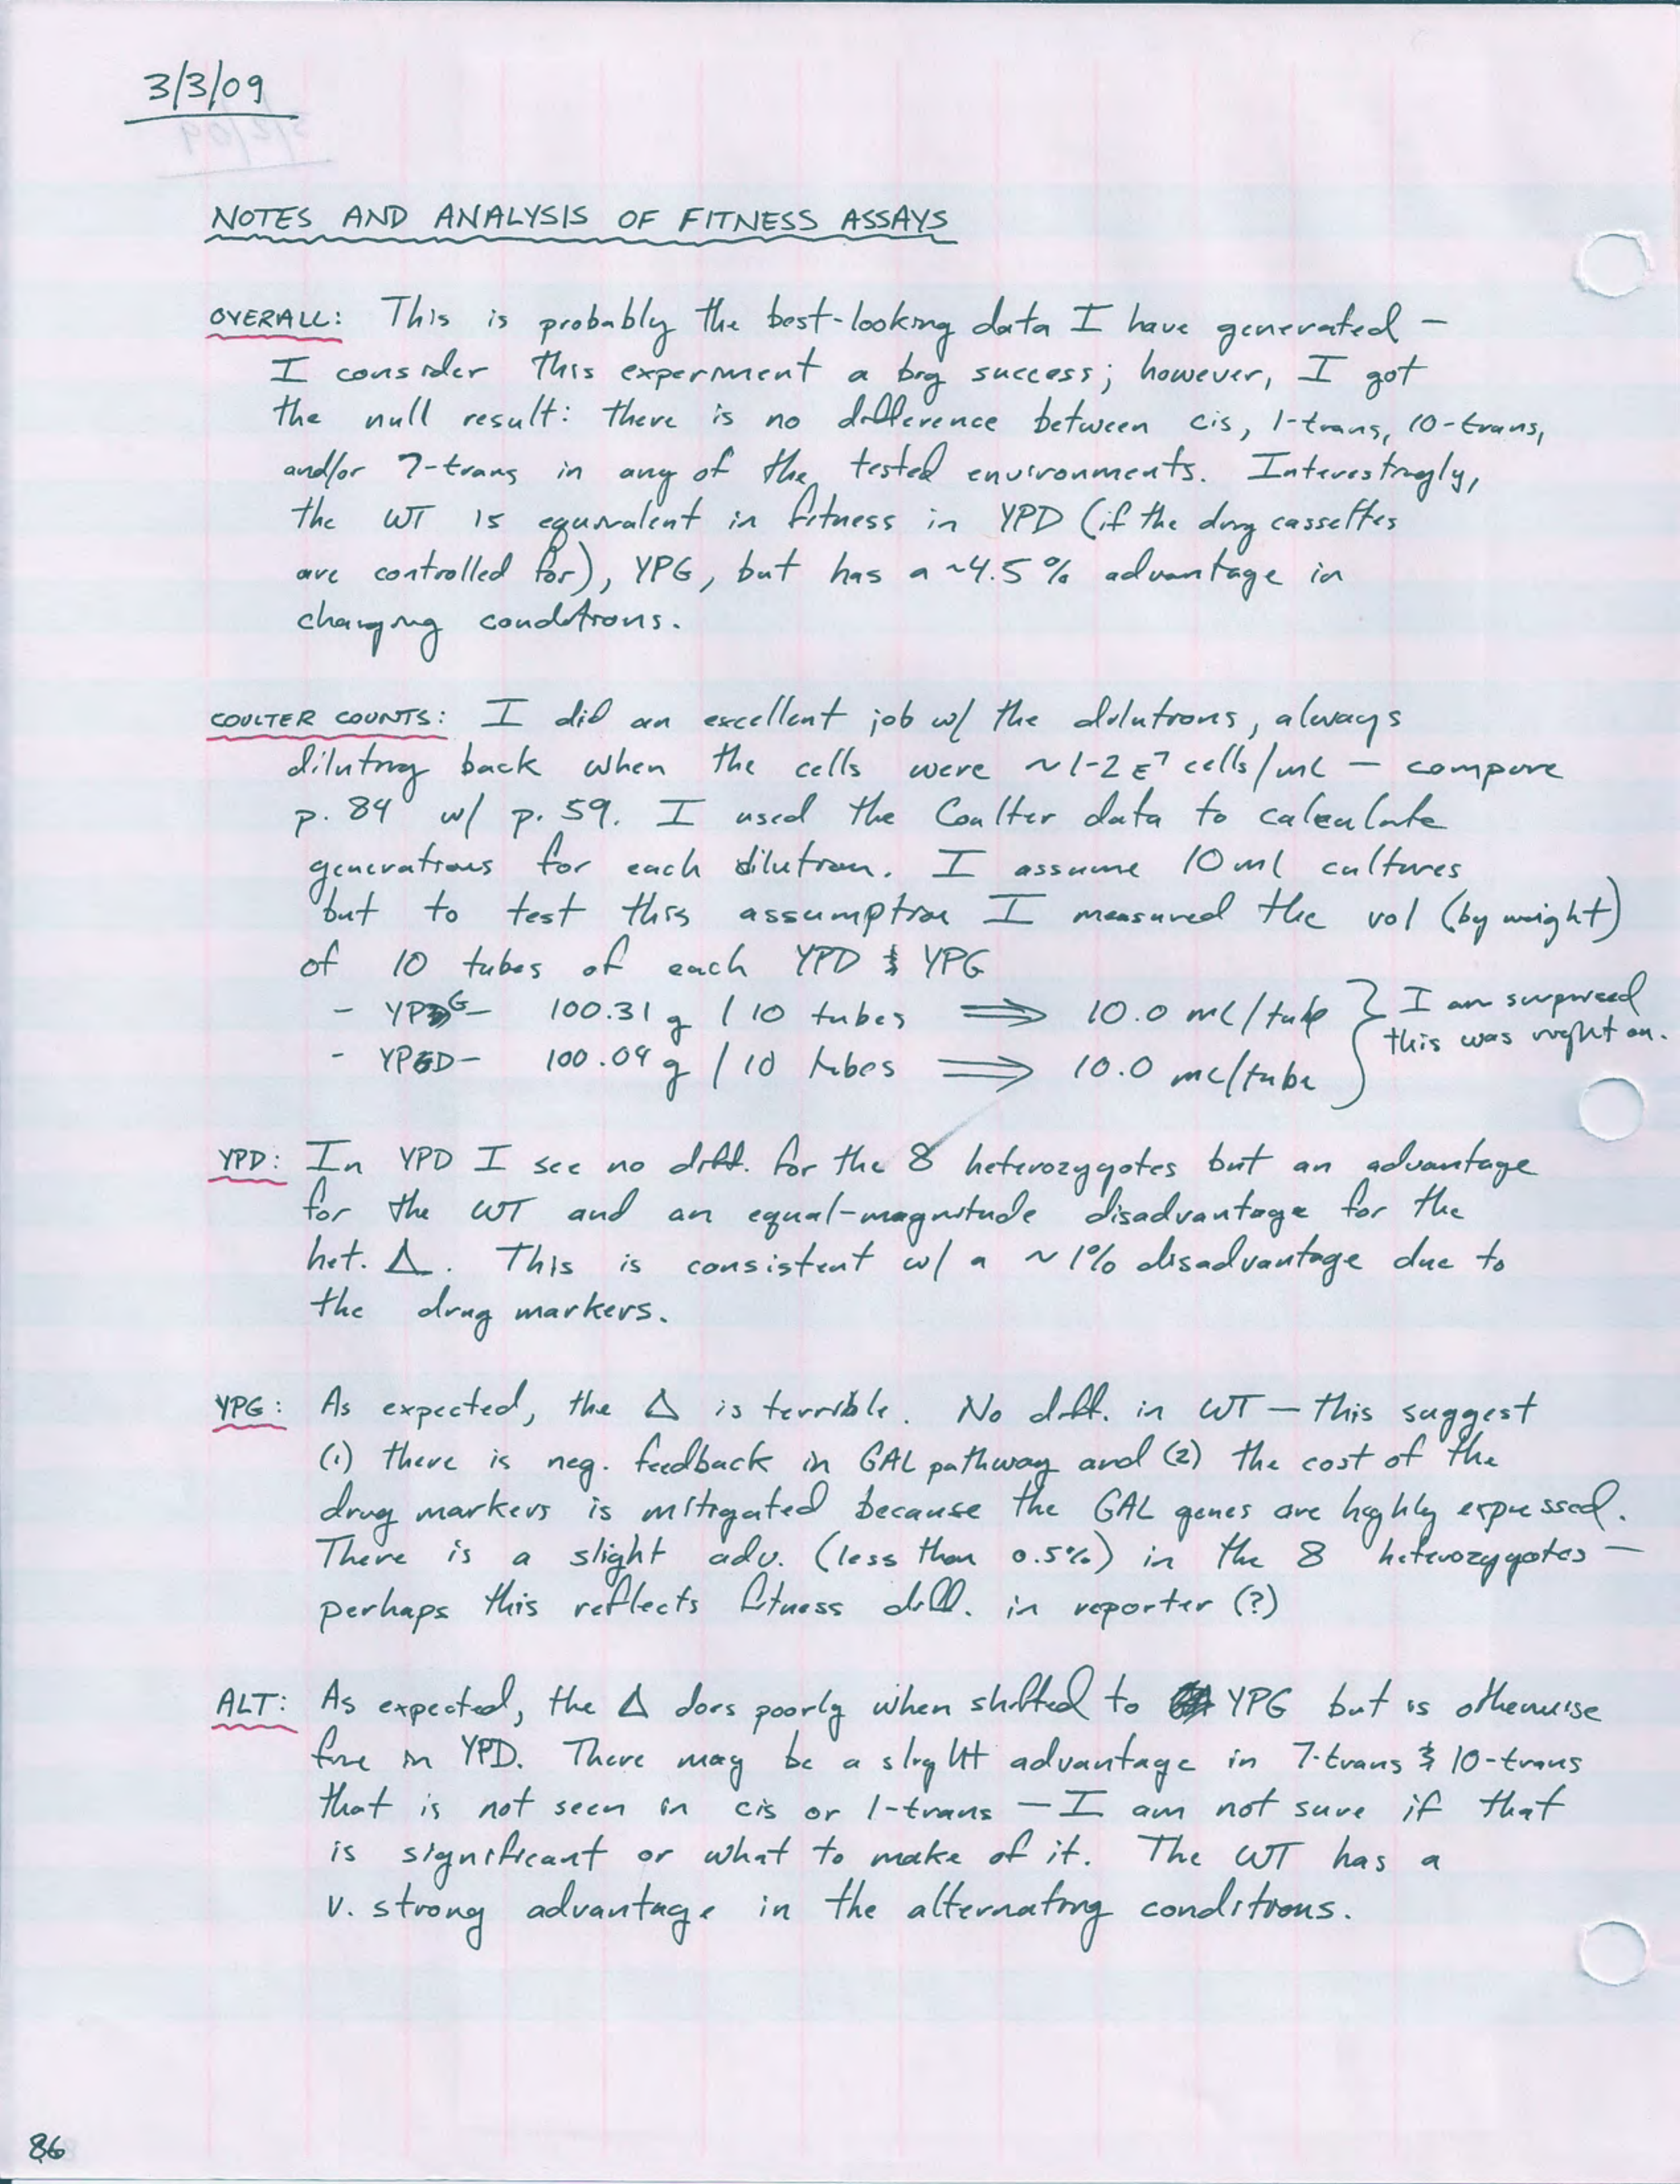 3/3/09
NOTES AND ANALYSIS OF FITNESS ASSAYS
OVERALL: This is probably the best-looking data I have generated —
I consider this experiment a big success; however, I got
the null result: there is no difference between cis, 1-trans, 10-trans,
and/or 7-trans in any of the tested environments. Interestingly,
the WT is equivalent in fitness in YPD (if the drug cassettes
are controlled for), YPG, but has a ~4.5% advantage in
changing conditions.
COULTER COUNTS: I did an excellent job w/ the dilutions, always
diluting back when the cells were ~1-2 E⁷ cells/mL — compare
p. 84 w/ p. 59. I used the Coulter data to calculate
generations for each dilution. I assume 10 ml cultures
but to test this assumption I measured the vol (by weight)
of 10 tubes of each YPD & YPG
- YPG - 100.31 g / 10 tubes ⟹ 10.0 mL/tube } I am surprised
- YPD - 100.09 g / 10 tubes ⟹ 10.0 mL/tube } this was right on.
YPD: In YPD I see no diff. for the 8 heterozygotes but an advantage
for the WT and an equal-magnitude disadvantage for the
het. Δ. This is consistent w/ a ~1% disadvantage due to
the drug markers.
YPG: As expected, the Δ is terrible. No diff. in WT — this suggest
(1) there is neg. feedback in GAL pathway and (2) the cost of the
drug markers is mitigated because the GAL genes are highly expressed.
There is a slight adv. (less than 0.5%) in the 8 heterozygotes —
perhaps this reflects fitness diff. in reporter (?)
ALT: As expected, the Δ does poorly when shifted to YPG but is otherwise
fine in YPD. There may be a slight advantage in 7-trans & 10-trans
that is not seen in cis or 1-trans — I am not sure if that
is significant or what to make of it. The WT has a
v. strong advantage in the alternating conditions.
86